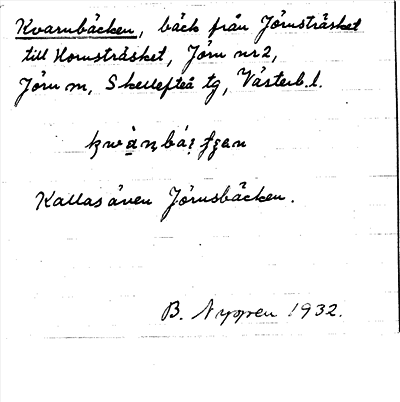 Kvarnbäcken, bäck från Jörnsträsket
till Hornsträsket, Jörn nr 2,
Jörn m, Skellefteå tg, Västerb. l.
Kallas även Jörnsbäcken.
B. Nygren 1932.